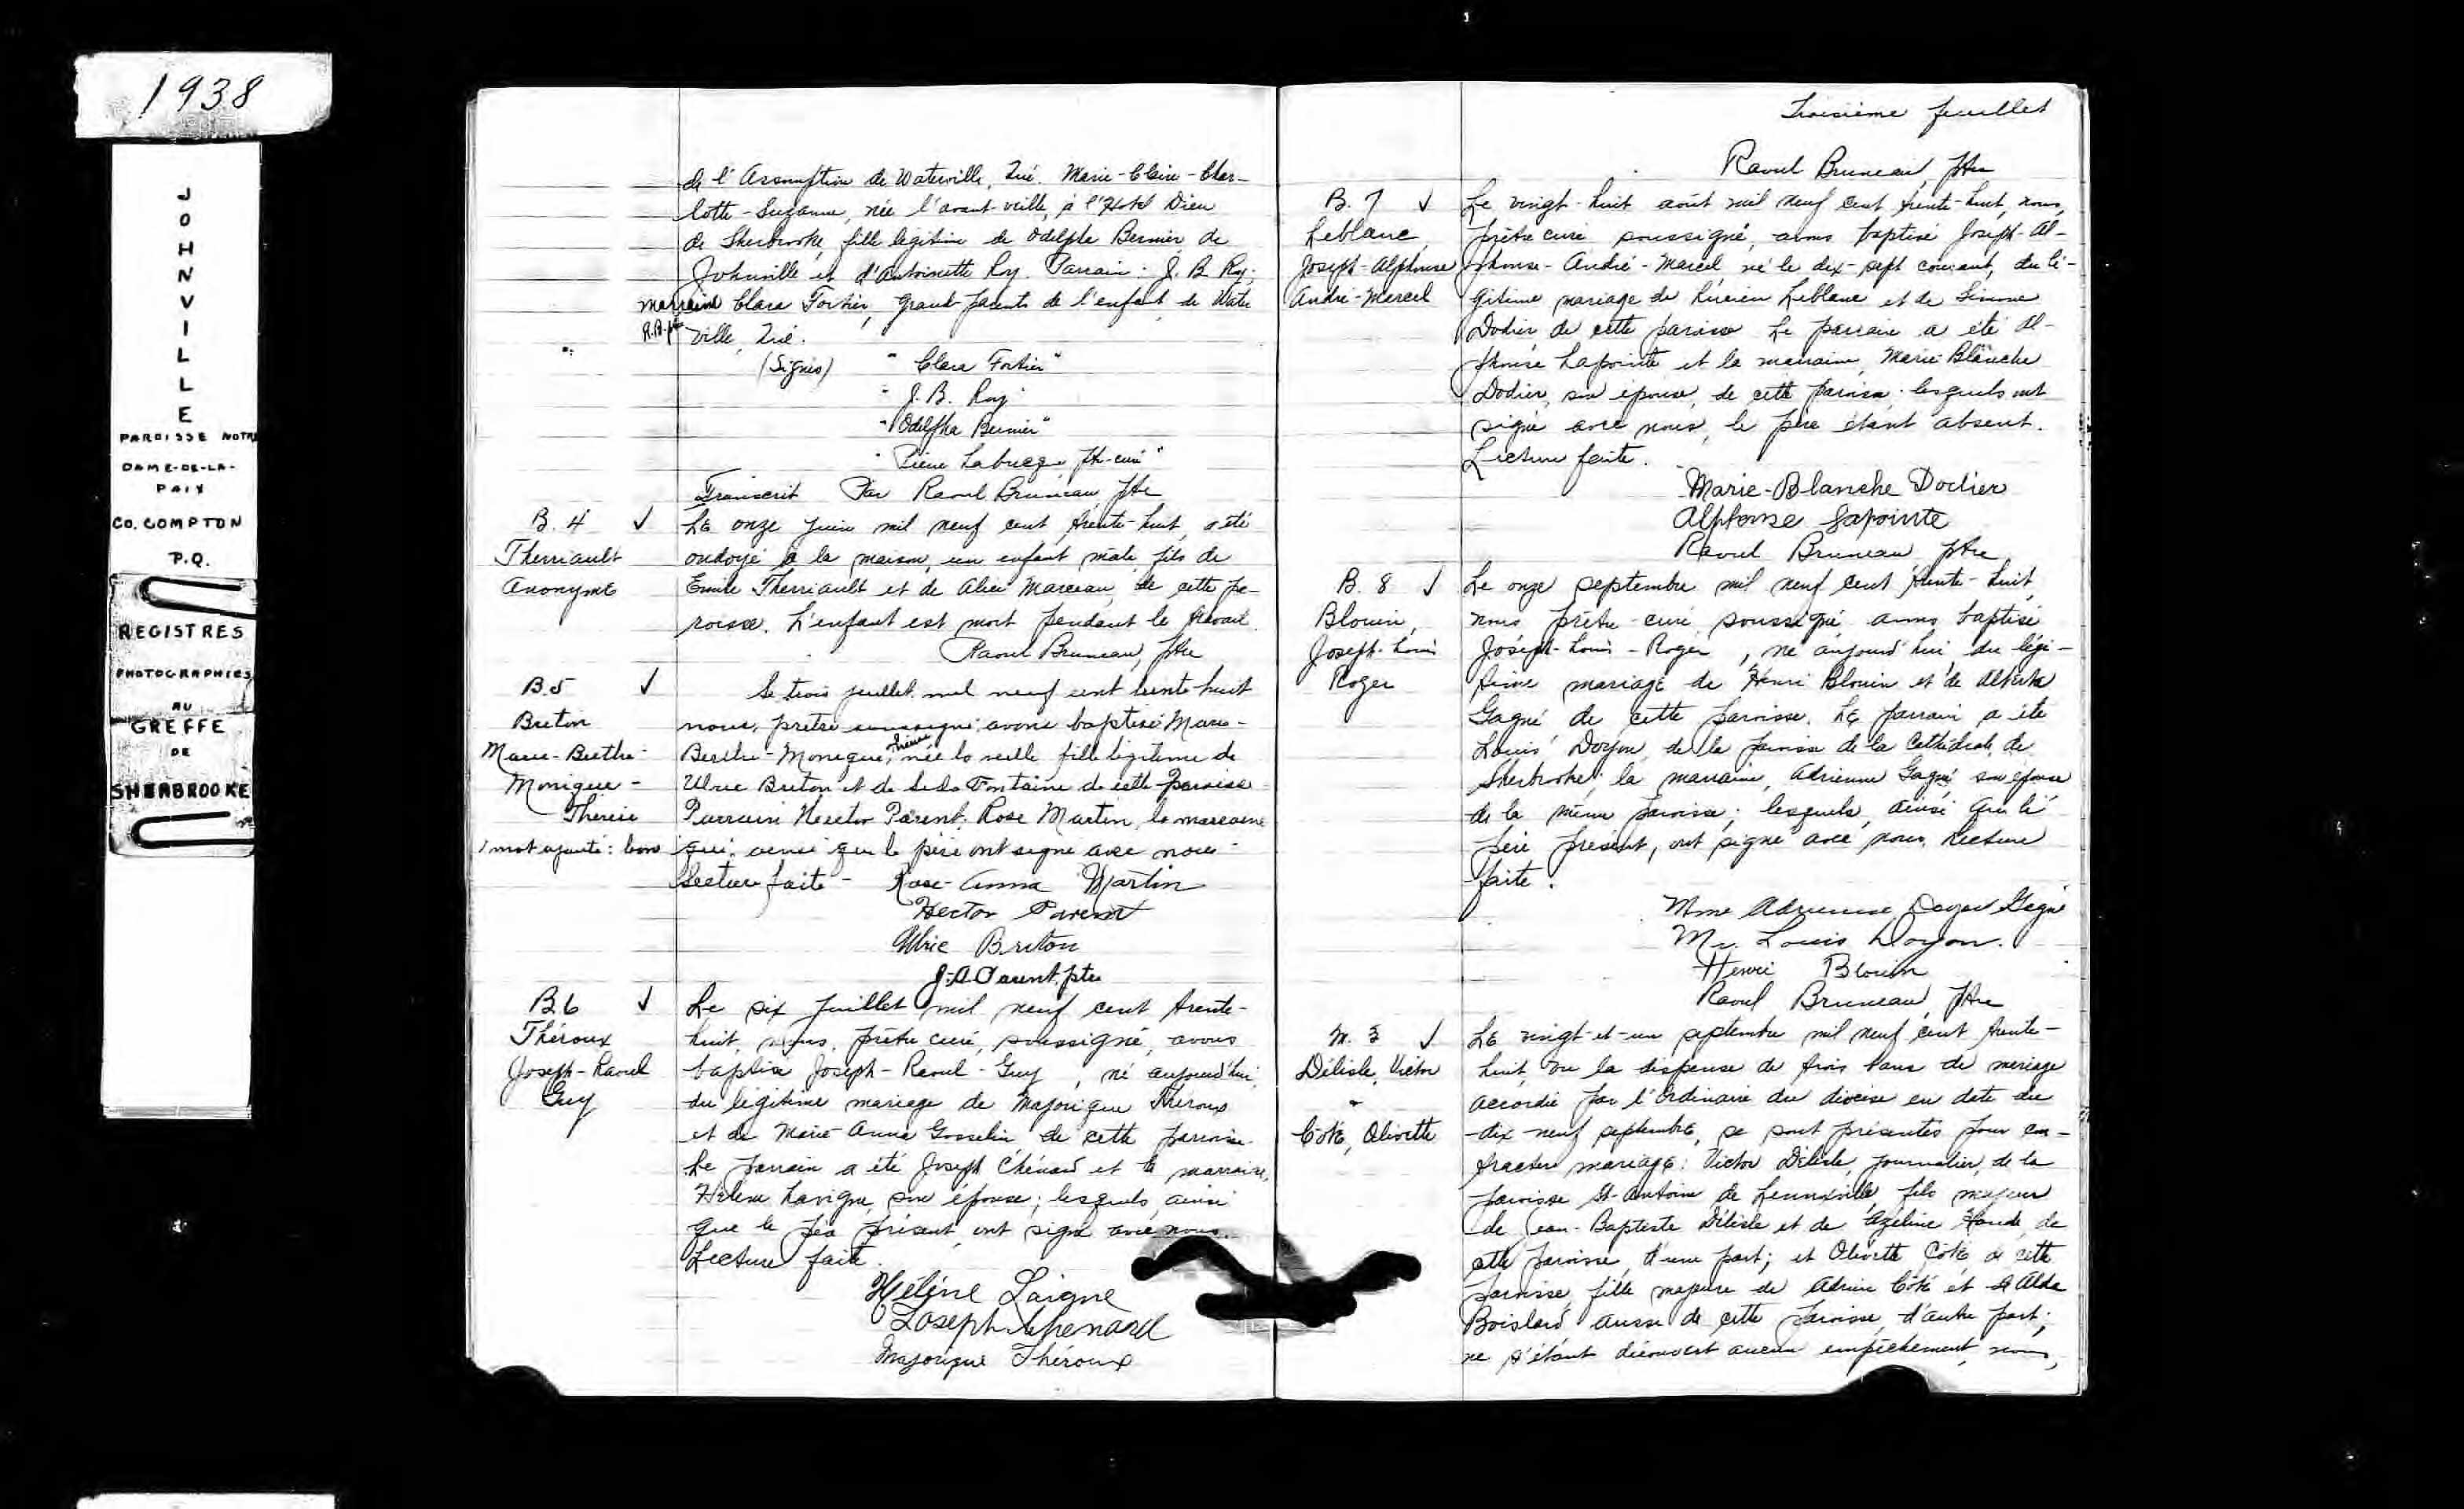 1938
JOHNVILLE
PAROISSE NOTRE
DAME-DE-LA-
PAIX
CO. COMPTON
P.Q.
REGISTRES
PHOTOGRAPHIES
AU
GREFFE
DE
SHERBROOKE
de l'Assomption de Waterville, Qué. Marie-Claire-Char-
lotte-Suzanne, née l'avant-veille, à l'Hotel Dieu
de Sherbrooke, fille légitime de Odelpha Bernier de
Johnville et d'Antoinette Roy. Parrain: J. B. Roy;
marraine Clara Fortier, grand-parents de l'enfant, de Water
R.B. ptre ville, Qué.
(Signés) "Clara Fortier"
"J. B. Roy"
"Odelpha Bernier"
ptre-curé"
Transcrit Par Raoul Bruneau ptre
B. 4 ✓
Therriault
Anonyme
Le onze juin mil neuf cent trente-huit, a été
ondoyé à la maison, un enfant mâle, fils de
Emile Therriault et de Alice Marceau, de cette pa-
roisse. L'enfant est mort pendant le travail.
Raoul Bruneau, ptre
B.5 ✓
Breton
Marie-Berthe-
Monique-
Thérèse
1 mot ajouté: bon
Le trois juillet mil neuf cent trente huit
nous, prêtre soussigné, avons baptisé Marie-
Berthe-Monique, Thérèse née la veille fille légitime de
Ulric Breton et de Fontaine de cette paroisse
Parrain Hector Parent, Rose Martin, la marraine
qui, ainsi que le père ont signé avec nous-
Lecture faite - Rose-Anna Martin
Hector Parent
Ulric Breton
J.-A. Parent, ptre
B.6 ✓
Théroux
Joseph-Raoul
Guy
Le six juillet mil neuf cent trente-
huit, nous, prêtre curé, soussigné, avons
baptisé Joseph-Raoul-Guy, né aujourd'hui,
du légitime mariage de Majorique Théroux
et de Marie-Anna Gosselin de cette paroisse.
Le parrain a été Joseph Chénard et la marraine,
Hélène Lavigne, son épouse; lesquels, ainsi
que le père présent, ont signé avec nous.
Lecture faite.
Hélène Laigne
Joseph Chenard
Majorique Théroux
Troisième feuillet
Raoul Bruneau, ptre
B. 7 ✓
Leblanc,
Joseph-Alphonse
André-Marcel
Le vingt-huit août mil neuf cent trente-huit, nous,
prêtre curé soussigné, avons baptisé Joseph-Al-
phonse-André-Marcel, né le dix-sept courant, du lé-
gitime mariage de Lucien Leblanc et de Simone
Dodier, de cette paroisse. Le parrain a été Al-
phonse Lapointe et la marraine, Marie-Blanche
Dodier, son épouse, de cette paroisse. lesquels ont
signé avec nous, le père étant absent.
Lecture faite.
Marie-Blanche Dodier
Alphonse Lapointe
Raoul Bruneau, ptre
B. 8 ✓
Blouin,
Joseph-Louis
Roger
Le onze septembre mil neuf cent trente-huit,
nous prêtre-curé soussigné avons baptisé
Joseph-Louis-Roger, né aujourd'hui, du légi-
time mariage de Henri Blouin et de Alberta
Gagné de cette paroisse. Le parrain a été
Louis Doyon, de la paroisse de la Cathédrale de
Sherbrooke; la marraine, Adrienne Gagné, son épouse
de la même paroisse; lesquels, ainsi que le
père présent, ont signé avec nous. Lecture
faite.
Mme Adrienne Doyon Gagné
Mr. Louis Doyon.
Henri Blouin
Raoul Bruneau, ptre
M. 3 ✓
Délisle, Victor
Côté, Olivette
Le vingt-et-un septembre mil neuf cent trente-
huit, vu la dispense de trois bans de mariage
accordée par l'Ordinaire du diocèse en date du
dix-neuf septembre, se sont présentés pour con-
tracter mariage: Victor Délisle, journalier, de la
paroisse St-Antoine de Lennoxville, fils majeur
de Jean-Baptiste Délisle et de Azéline de
cette paroisse, d'une part; et Olivette Côté, de cette
paroisse, fille majeure de Adrien Côté et d'Alda
Boislard aussi de cette paroisse, d'autre part;
ne s'étant découvert aucun empêchement, nous,